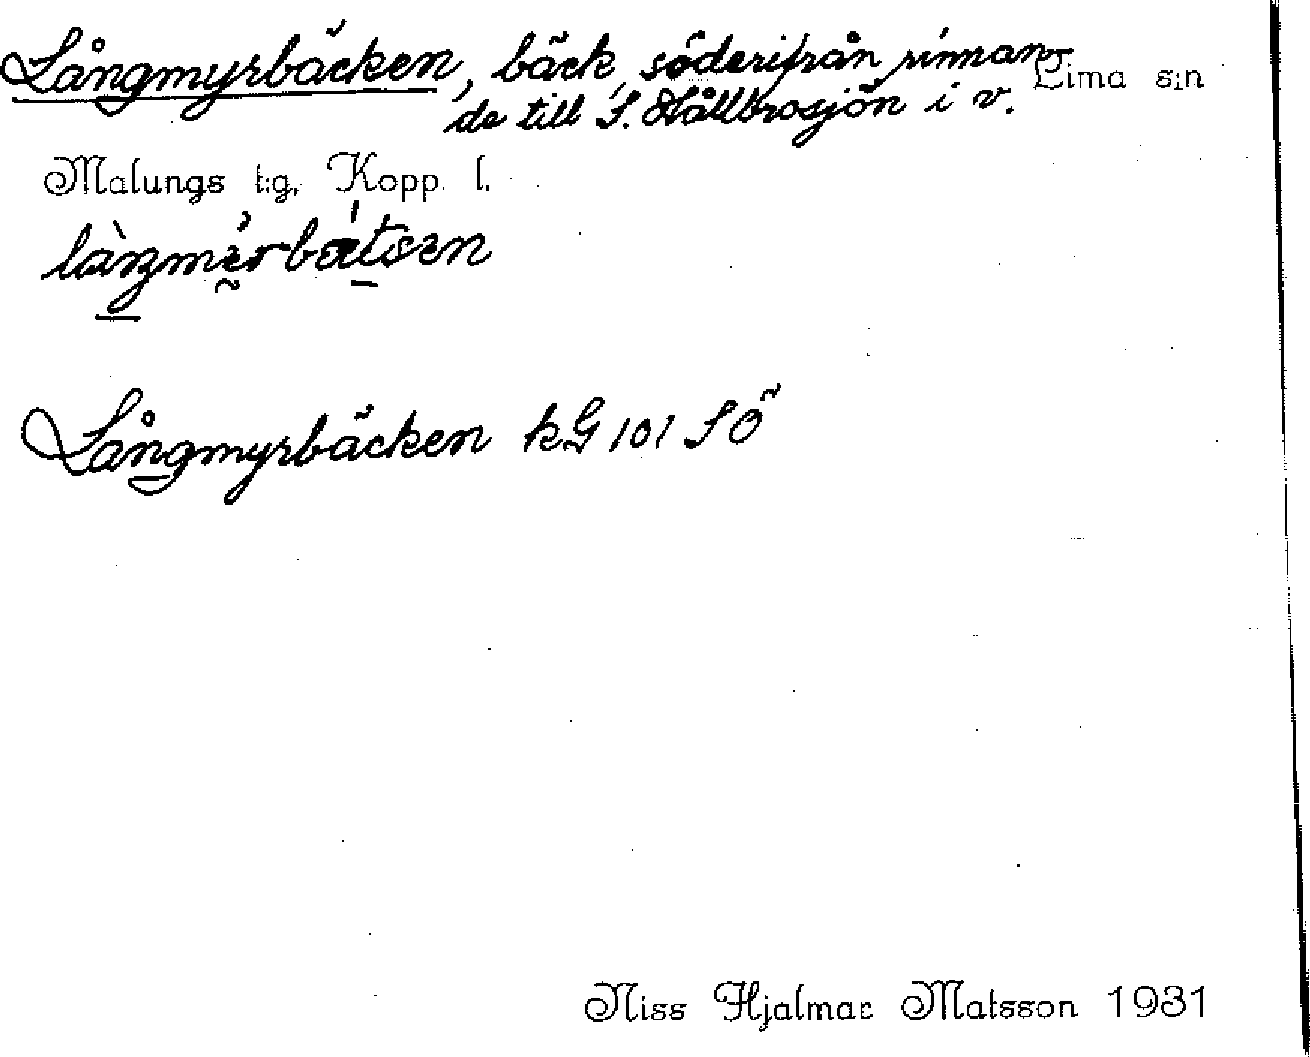 Långmyrbäcken, bäck, söderifrån rinnan- Lima s:n
de till S. Hållbrosjön i v.
Malungs t:g, Kopp. l.
Långmyrbäcken kG 101 SÖ
Niss Hjalmar Matsson 1931